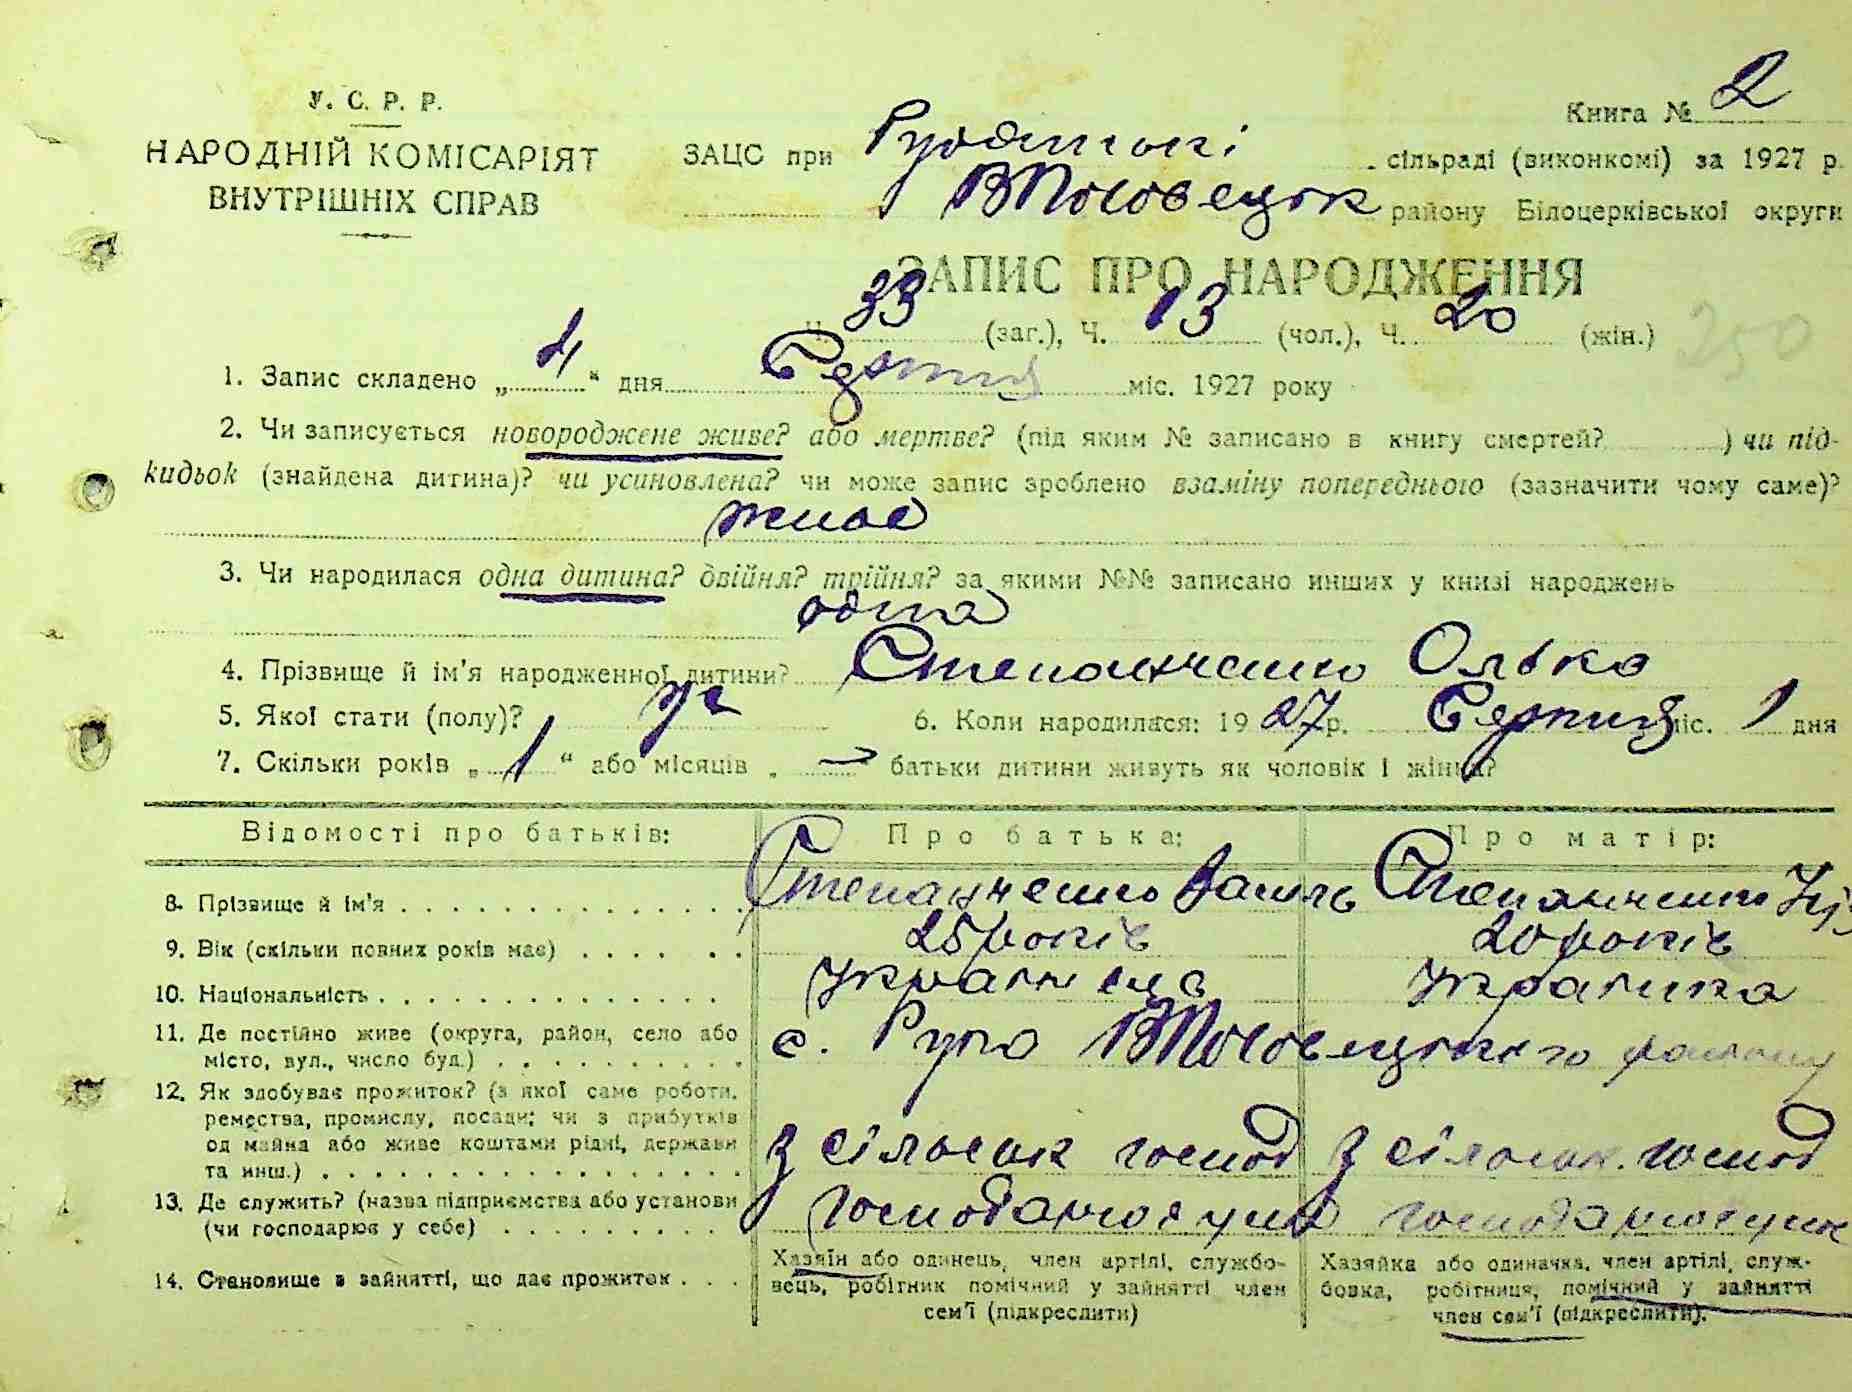 У. С. Р. Р.
НАРОДНІЙ КОМІСАРІЯТ
ВНУТРІШНІХ СПРАВ
Книга № 2
ЗАЦС при сільраді (виконкомі) за 1927 р.
району Білоцерківської округи
ЗАПИС ПРО НАРОДЖЕННЯ
Ч. 33 (заг.), Ч. 13 (чол.), Ч. 20 (жін.)
250
1. Запис складено „ 4 “ дня Серпня міс. 1927 року
2. Чи записується новороджене живе? або мертве? (під яким № записано в книгу смертей? ) чи під-
кидьок (знайдена дитина)? чи усиновлена? чи може запис зроблено взаміну попереднього (зазначити чому саме)?
живе
3. Чи народилася одна дитина? двійня? трійня? за якими №№ записано инших у книзі народжень
одна
4. Прізвище й ім'я народженної дитини? Степанченко Олька
5. Якої стати (полу)? ж 6. Коли народилася: 1927р. Серпня міс. 1 дня
7. Скільки років „ 1 “ або місяців „ — “ батьки дитини живуть як чоловік і жінка?
Відомості про батьків: Про батька: Про матір:
8. Прізвище й ім'я Степанченко Василь Степанченко
9. Вік (скільки повних років має) 25 років 20 років
10. Національність Українець Українка
11. Де постійно живе (округа, район, село або
місто, вул., число буд.) с. Руда району
12. Як здобуває прожиток? (з якої саме роботи,
ремества, промислу, посади; чи з прибутків
од майна або живе коштами рідні, держави
та инш.) З сільськ господ З сільськ. господ
13. Де служить? (назва підприємства або установи
(чи господарює у себе)
14. Становище в зайнятті, що дає прожиток
Хазяїн або одинець, член артілі, службо-
вець, робітник помічний у зайнятті член
сем'ї (підкреслити)
Хазяйка або одиначка, член артілі, служ-
бовка, робітниця, помічний у зайнятті
член сем'ї (підкреслити).